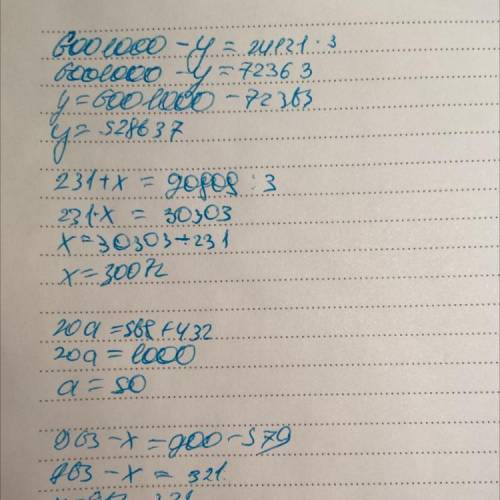 6001000 - y = 24121 · 3
6001000 - y = 72363
y = 6001000 - 72363
y = 528637
231 + x = 90909 : 3
231 + x = 30303
x = 30303 - 231
x = 30072
20a = 568 + 432
20a = 1000
a = 50
963 - x = 900 - 579
963 - x = 321